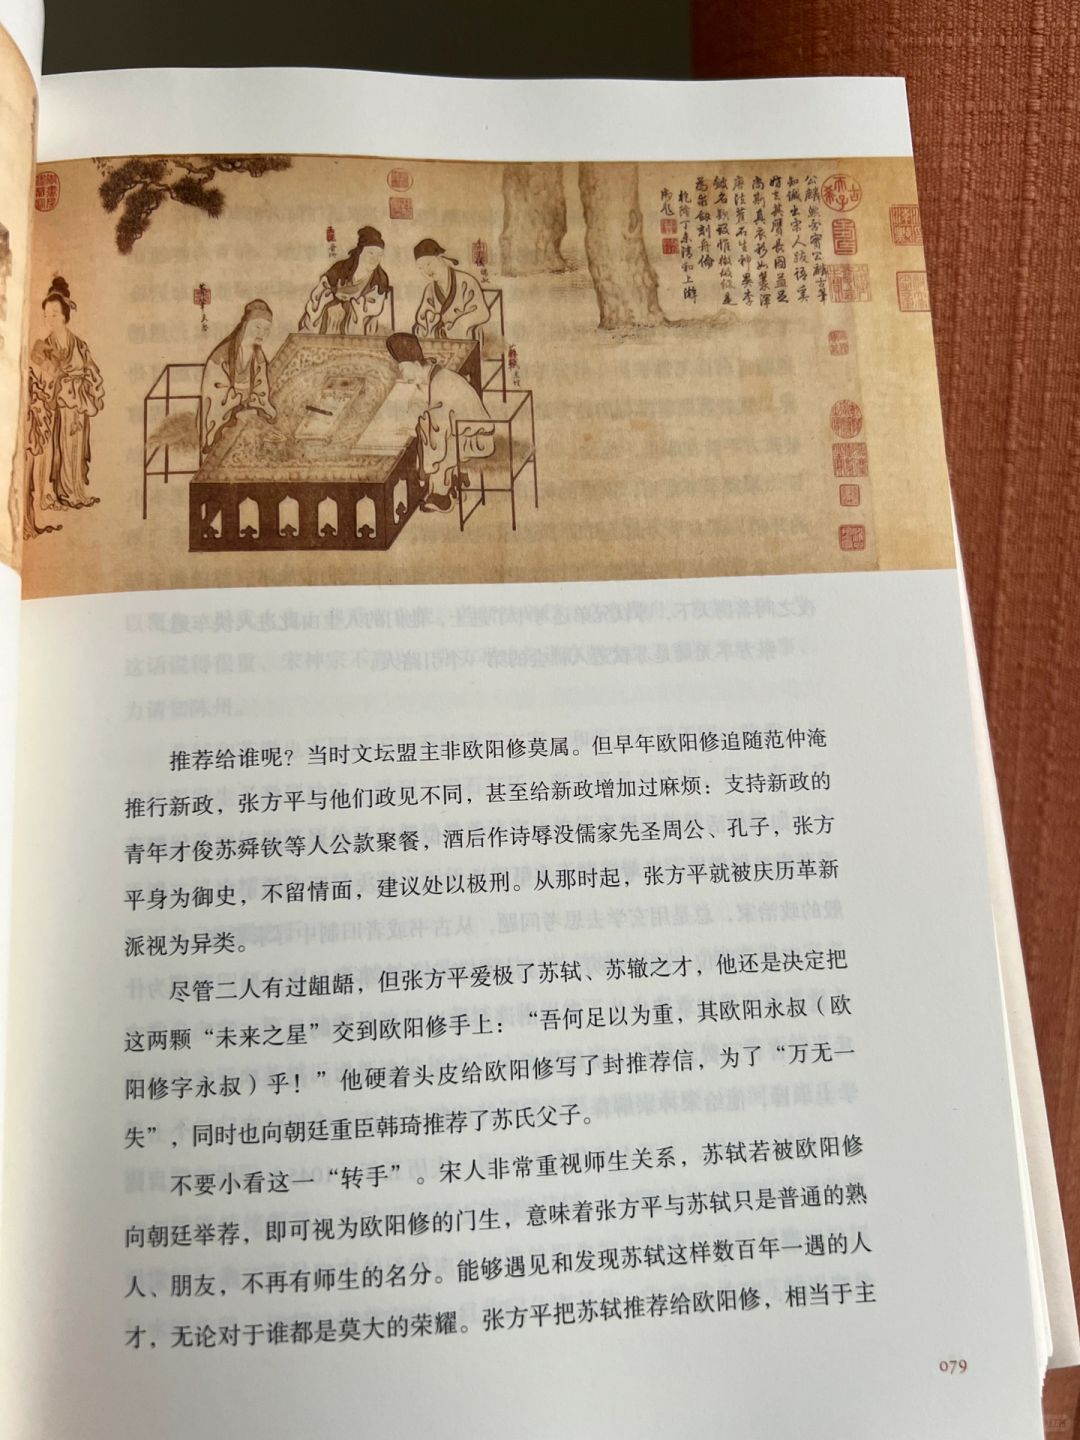 乾隆丁未清和上澣
御題
推荐给谁呢？当时文坛盟主非欧阳修莫属。但早年欧阳修追随范仲淹
推行新政，张方平与他们政见不同，甚至给新政增加过麻烦：支持新政的
青年才俊苏舜钦等人公款聚餐，酒后作诗辱没儒家先圣周公、孔子，张方
平身为御史，不留情面，建议处以极刑。从那时起，张方平就被庆历革新
派视为异类。
尽管二人有过龃龉，但张方平爱极了苏轼、苏辙之才，他还是决定把
这两颗“未来之星”交到欧阳修手上：“吾何足以为重，其欧阳永叔（欧
阳修字永叔）乎！”他硬着头皮给欧阳修写了封推荐信，为了“万无一
失”，同时也向朝廷重臣韩琦推荐了苏氏父子。
不要小看这一“转手”。宋人非常重视师生关系，苏轼若被欧阳修
向朝廷举荐，即可视为欧阳修的门生，意味着张方平与苏轼只是普通的熟
人、朋友，不再有师生的名分。能够遇见和发现苏轼这样数百年一遇的人
才，无论对于谁都是莫大的荣耀。张方平把苏轼推荐给欧阳修，相当于主
079